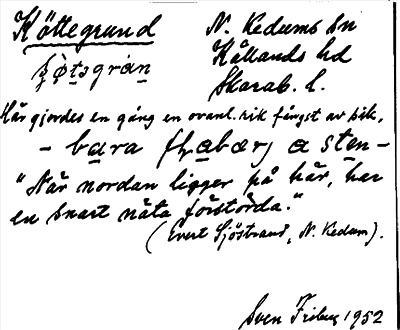 Köttegrund N. Kedums sn
Kållands hd
Skarab. l.
Här gjordes en gång en ovanl. rik fångst av sik,
- bara a sten -
"När nordan ligger på här, har
en snart näta förstörda."
(Evert Sjöstrand, N. Kedum).
Sven Friberg 1952